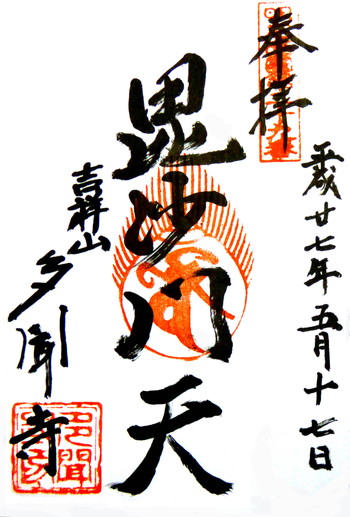 奉拝
平成廿七年五月十七日
毘沙門天
吉祥山
多聞寺